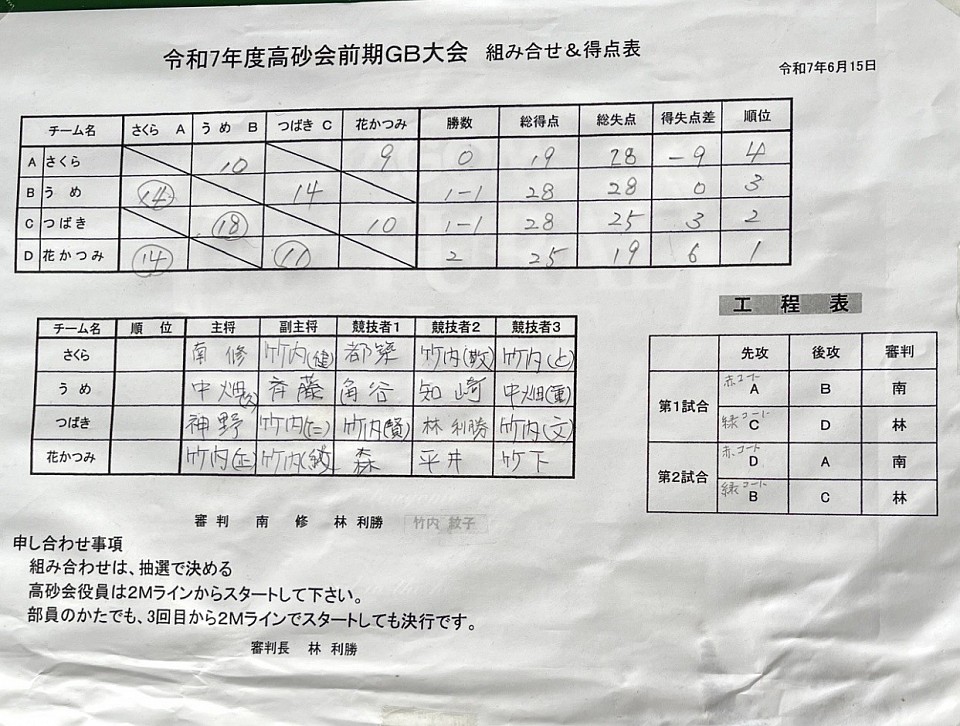 令和7年度高砂会前期GB大会 組み合せ＆得点表
令和7年6月15日
チーム名 さくら A うめ B つばき C 花かつみ 勝数 総得点 総失点 得失点差 順位
A さくら 10 9 0 19 28 -9 4
B うめ 14 14 1-1 28 28 0 3
C つばき 18 10 1-1 28 25 3 2
D 花かつみ 14 11 2 25 19 6 1
工程表
チーム名 順位 主将 副主将 競技者1 競技者2 競技者3
さくら 南 修 竹内(健) 都築 竹内(敏) 竹内(と)
うめ 中畑(久) 斉藤 角谷 知崎 中畑(重)
つばき 神野 竹内(仁) 竹内(賢) 林利勝 竹内(文)
花かつみ 竹内(正) 竹内(紋) 森 平井 竹下
先攻 後攻 審判
第1試合 赤コート A B 南
緑コート C D 林
第2試合 赤コート D A 南
緑コート B C 林
審判 南 修 林 利勝 竹内 紋子
申し合わせ事項
組み合わせは、抽選で決める
高砂会役員は2Mラインからスタートして下さい。
部員のかたでも、3回目から2Mラインでスタートしても決行です。
審判長 林 利勝